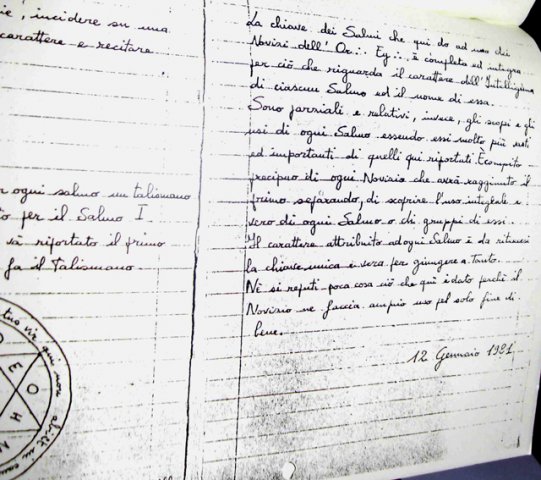 ie, incidere su una
carattere e recitare
r ogni salmo un talismano
to per il Salmo I
và riportato il primo
fa il Talismano.
tuo vir qui non abiit in con
E O H
La chiave dei Salmi che qui do ad uso dei
Novizi dell' Or∴ Eg∴ è completa ed integra
per ciò che riguarda il carattere dell'Intelligenza
di ciascun Salmo ed il nome di essa.
Sono parziali e relativi, invece, gli scopi e gli
usi di ogni Salmo essendo essi molto più vasti
ed importanti di quelli qui riportati. È compito
precipuo di ogni Novizio che avrà raggiunto il
primo separando, di scoprire l'uso integrale e
vero di ogni Salmo o di gruppi di essi.
Il carattere attribuito ad ogni Salmo è da ritenersi
la chiave unica e vera per giungere a tanto.
Nè si reputi poca cosa ciò che qui è dato perchè il
Novizio ne faccia ampio uso pel solo fine di
bene.
12 Gennaio 1921